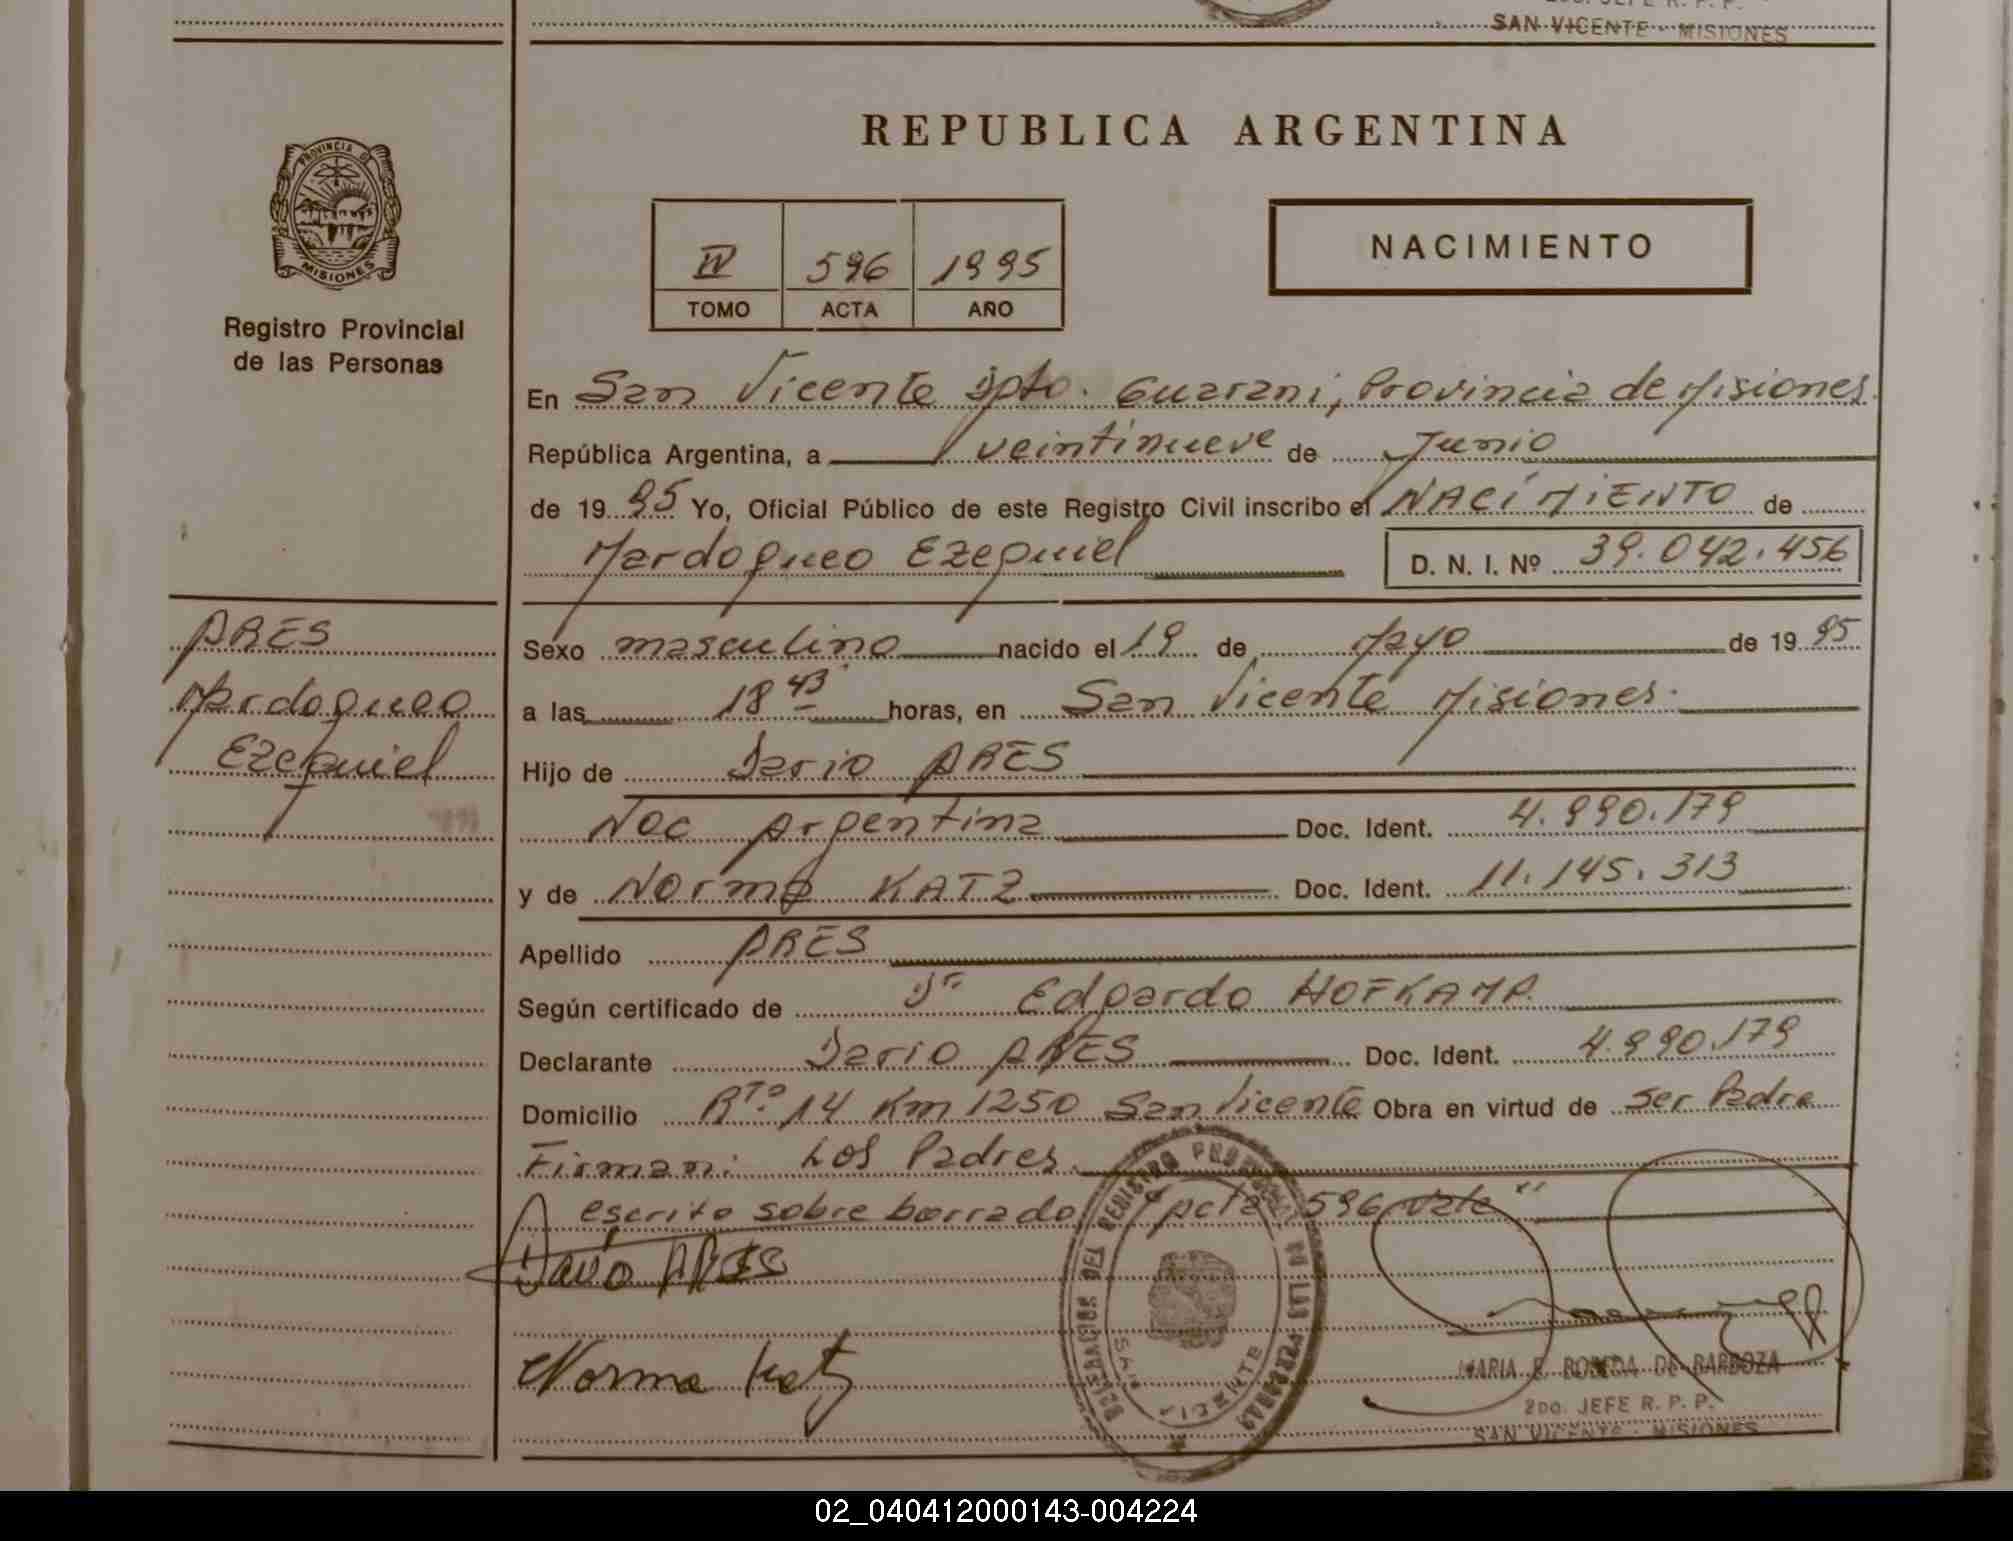 SAN VICENTE - MISIONES
REPUBLICA ARGENTINA
PROVINCIA DE
MISIONES
Registro Provincial
de las Personas
IV 596 1995
TOMO ACTA AÑO
NACIMIENTO
En San Vicente Dpto. Guarani, Provincia de Misiones.
República Argentina, a veintinueve de Junio
de 1995 Yo, Oficial Público de este Registro Civil inscribo el NACIMIENTO de
Mardoqueo Ezequiel D. N. I. Nº 39.042.456
ARES
Mardoqueo
Ezequiel
Sexo masculino nacido el 19 de Mayo de 1995
a las 18 43 horas, en San Vicente Misiones.
Hijo de Dario ARES
Nac Argentina Doc. Ident. 4.990.179
y de Norma KATZ Doc. Ident. 11.145.313
Apellido ARES
Según certificado de Dr Edgardo HOFKAMP.
Declarante Dario ARES Doc. Ident. 4.990.179
Domicilio Rta. 14 Km 1250 San Vicente Obra en virtud de ser Padre
Firman: Los Padres.
escrito sobre borrado "Acta 596 vale"
Dario ARES
Norma Katz
DELEGACION DEL REGISTRO PROVINCIAL DE LAS PERSONAS
SAN VICENTE
MARIA E. DE BARBOZA
2DO. JEFE R. P. P.
SAN VICENTE - MISIONES
02_040412000143-004224